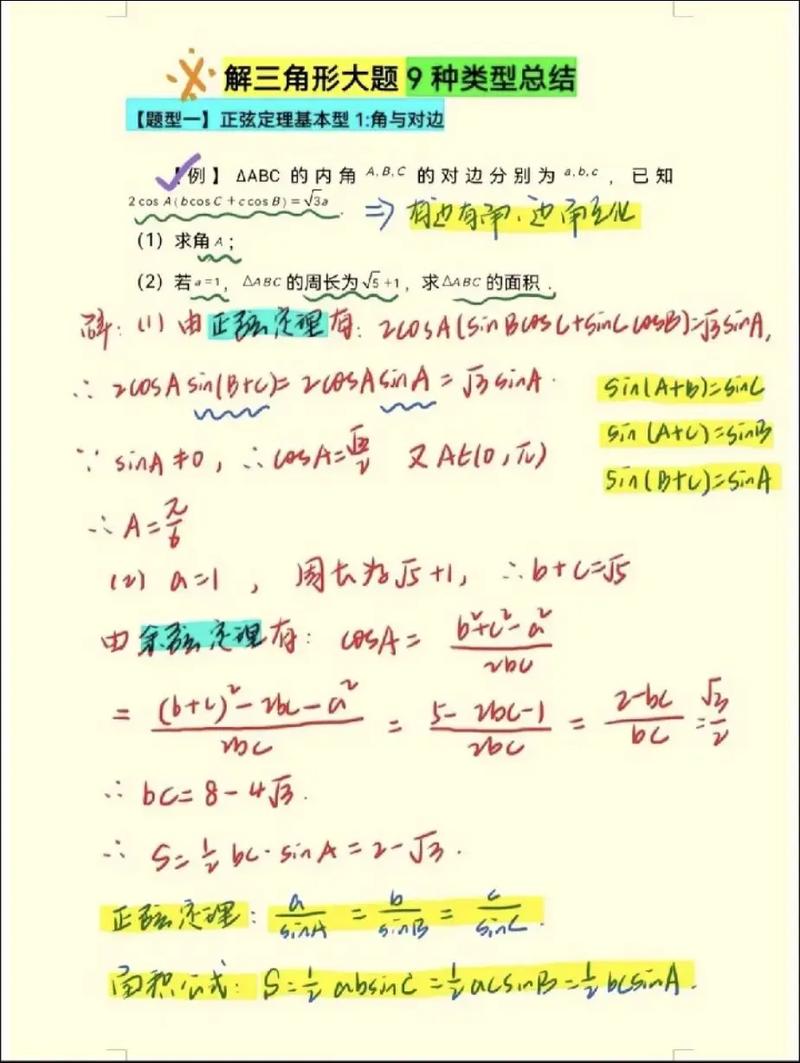 解三角形大题 9 种类型总结
【题型一】正弦定理基本型 1:角与对边
【例】ΔABC 的内角 A,B,C 的对边分别为 a,b,c ，已知
2cos A(bcosC+ccosB)=√3a . ⇒ 有边有角、边角互化
（1）求角 A；
（2）若 a=1，△ABC 的周长为 √5+1，求 △ABC 的面积．
解：(1) 由正弦定理有：2cosA(sinBcosC+sinCcosB)=√3sinA,
∴ 2cosAsin(B+C)=2cosAsinA=√3sinA. sin(A+B)=sinC
sin(A+C)=sinB
∵ sinA≠0，∴cosA=√3/2 又A∈(0,π) sin(B+C)=sinA
∴ A=π/6
(2) a=1，周长为√5+1，∴b+c=√5
由余弦定理有：cosA= (b²+c²-a²)/2bc
= ((b+c)²-2bc-a²)/2bc = (5-2bc-1)/2bc = (2-bc)/bc = √3/2
∴ bc=8-4√3.
∴ S=1/2 bc·sinA=2-√3.
正弦定理：a/sinA = b/sinB = c/sinC.
面积公式：S=1/2 absinC=1/2 acsinB=1/2 bcsinA.